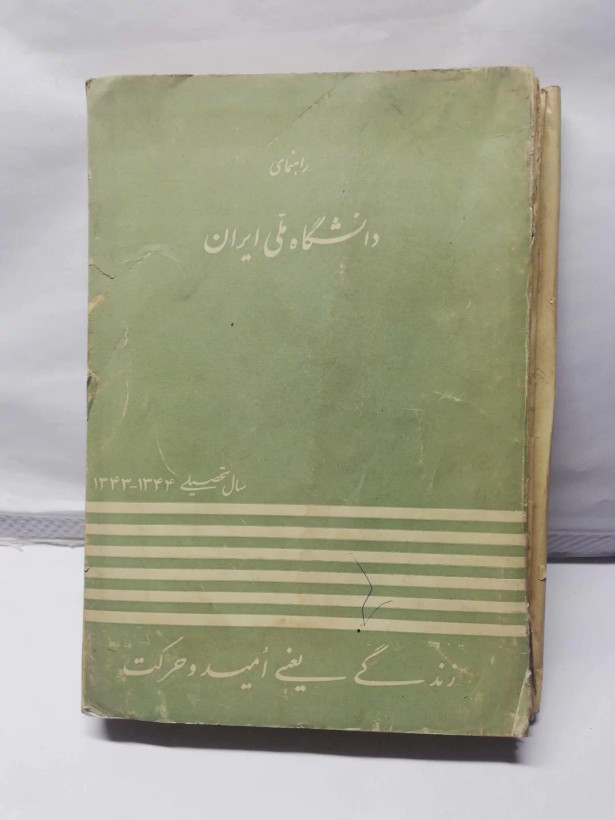 راهنمای
دانشگاه ملّی ایران
سال تحصیلی ۱۳۴۴-۱۳۴۳
زندگی یعنی اُمید و حرکت